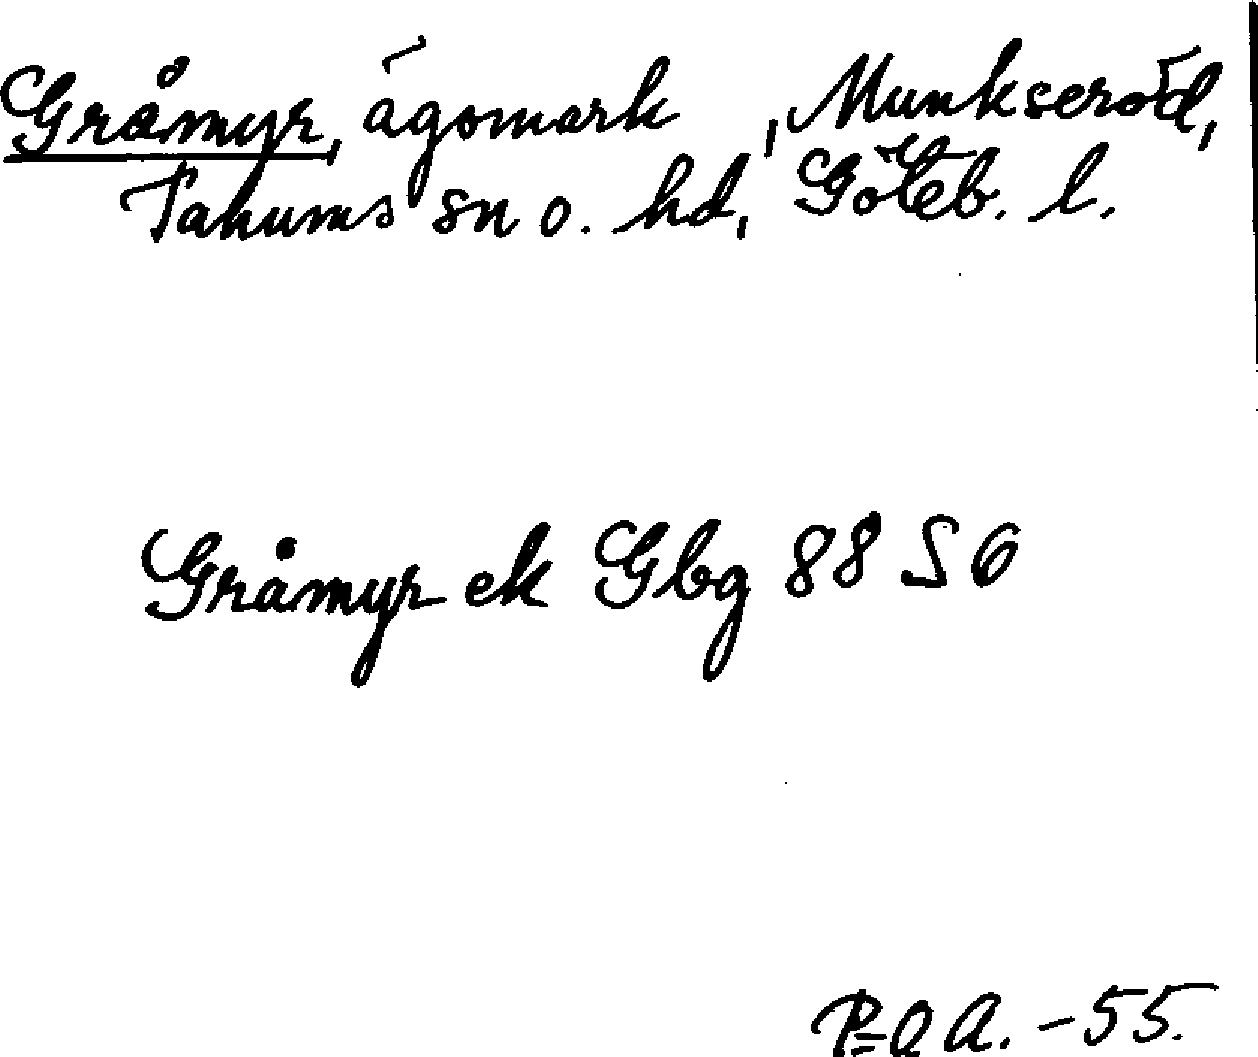 Gråmyr, ägomark , Munkseröd,
Tanums sn o. hd, Göteb. l.
Gråmyr ek Gbg 88 S 6
A. -55.